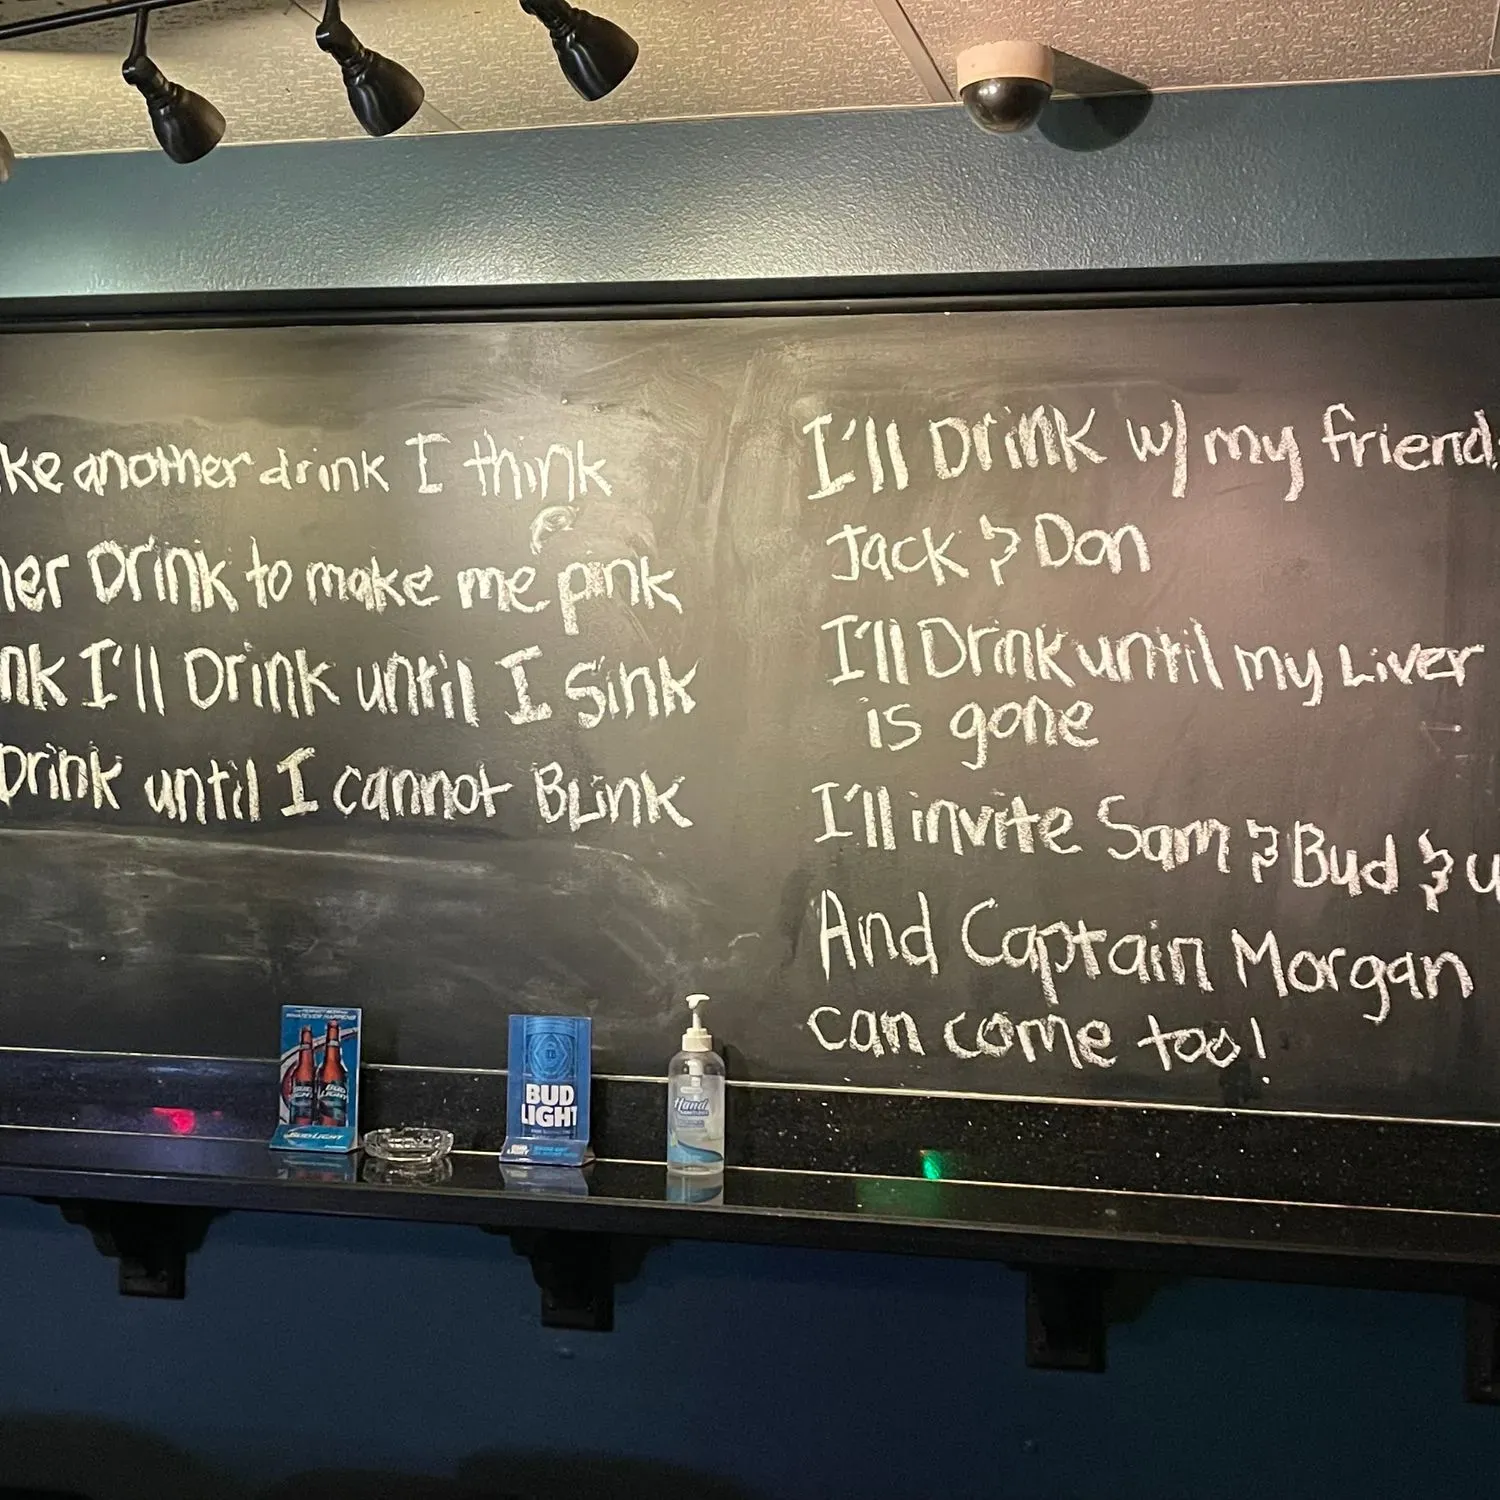 another drink I think
Drink to make me pink
I'll Drink until I Sink
Drink until I cannot BLink
I'll Drink w/ my friends
Jack & Don
I'll Drink until my Liver
is gone
I'll invite Sam & Bud &
And Captain Morgan
can come too!
WHATEVER HAPPENS
BUD LIGHT
BUD LIGHT
BUD LIGHT
BUD
LIGHT
Hand